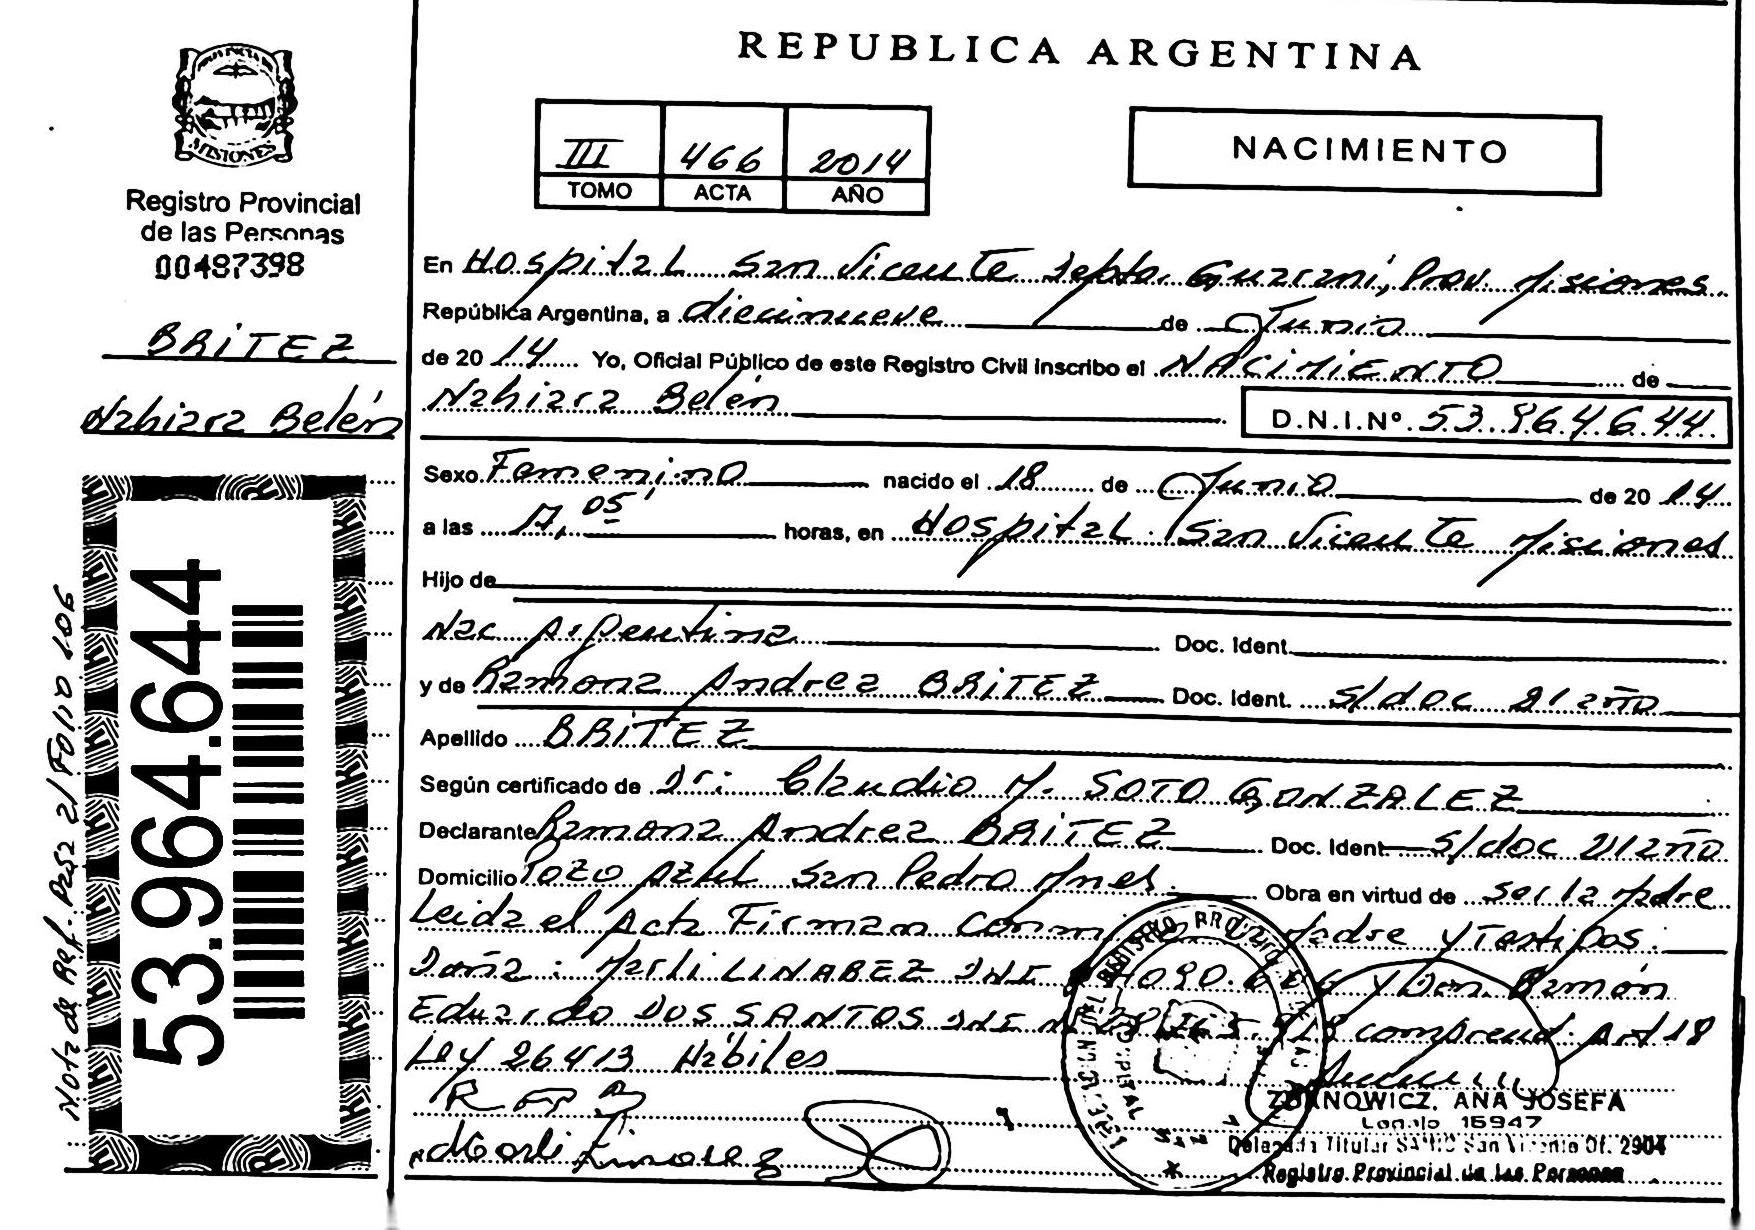 REPUBLICA ARGENTINA
MISIONES
Registro Provincial
de las Personas
00487398
BRITEZ
Nahiara Belén
53.964.644
Nota de Ref. Pasa al Folio 106
III 466 2014
TOMO ACTA AÑO
NACIMIENTO
En Hospital San Vicente Depto. Guaraní, Prov. Misiones
República Argentina, a diecinueve de Junio
de 2014 Yo, Oficial Público de este Registro Civil inscribo el NACIMIENTO de
Nahiara Belén
D.N.I.Nº 53.964.644
Sexo Femenino nacido el 18 de Junio de 2014
a las 17,05' horas, en Hospital San Vicente Misiones
Hijo de
Nac Argentina Doc. Ident.
y de Ramona Andrea BRITEZ Doc. Ident. s/doc 21 año
Apellido BRITEZ
Según certificado de Dr: Claudio M. SOTO GONZALEZ
Declarante Ramona Andrea BRITEZ Doc. Ident s/doc 21 año
Domicilio Pozo Azul San Pedro Mnes. Obra en virtud de ser la Madre
Leida el Acta Firman Madre y Testigos:
Doña: Marli LINAREZ DNI y Don Ramón
Eduardo DOS SANTOS DNI comprend. Art 18
Ley 26413 Hábiles
Marli Linarez
ANA JOSEFA
15947
Delegada Titular San Vicente Of. 2904
Registro Provincial de las Personas